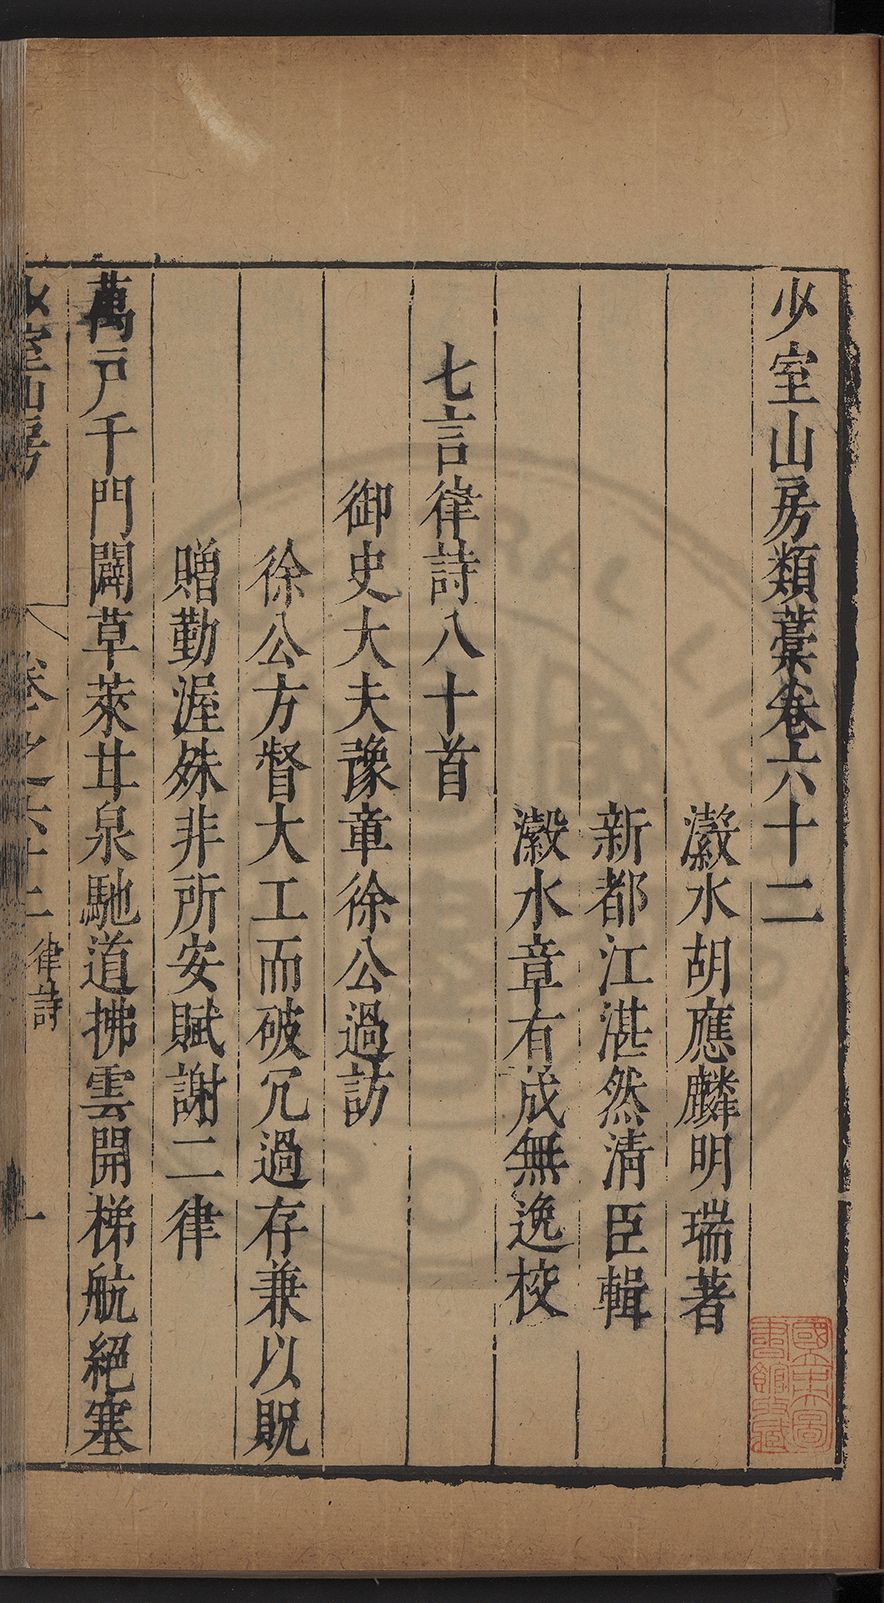 少室山房類藁卷六十二
瀫水胡應麟明瑞著
新都江湛然清臣輯
瀫水章有成無逸校
七言律詩八十首
御史大夫豫章徐公過訪
徐公方督大工而破冗過存兼以貺
贈勤渥殊非所安賦謝二律
萬戶千門闢草萊甘泉馳道拂雲開梯航絕塞
少室山房 卷之六十二 律詩 一
國立中央圖書館收藏